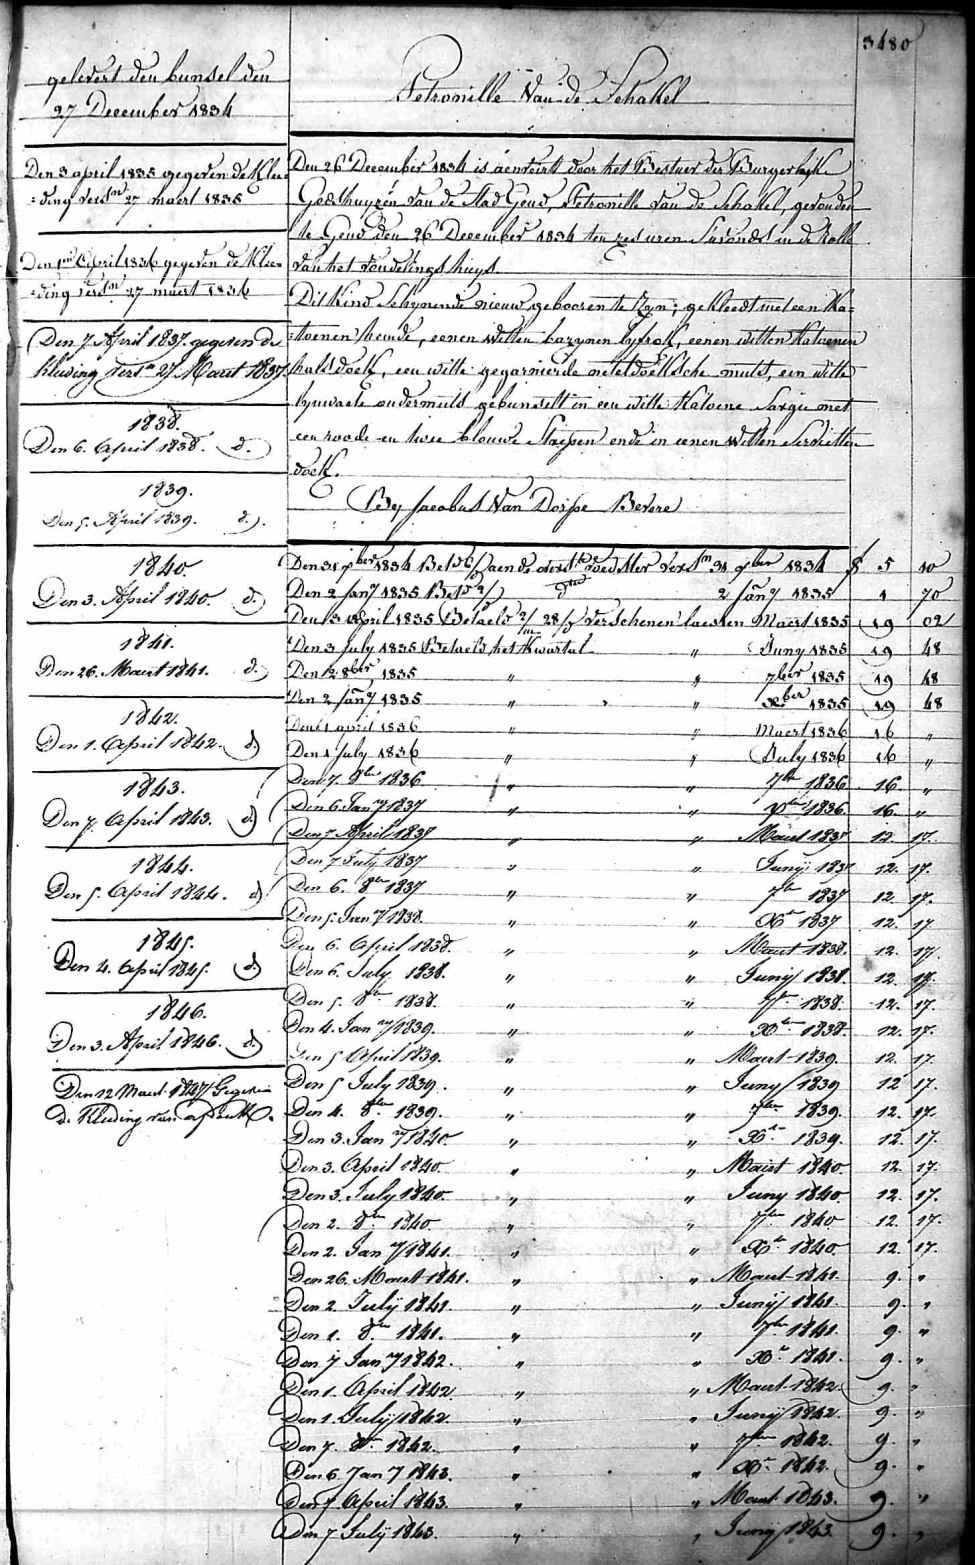 3480
gelevert den bunsel den
27 December 1834
Petronille Van de Schakel
Den 3 april 1835 gegeven de Klee=
=ding verst^n 27 maert 1835
Den 1^en April 1836 gegeven de Klee=
=ding verst^n 27 maert 1836
Den 7. April 1837. gegeven de
kleeding verst^n 27 Maart 1837
1838.
Den 6. April 1838. d.
1839.
Den 5. April 1839. d.
1840.
Den 3. April 1840. d.
1841.
Den 26. Maart 1841. d.
1842.
Den 1. April 1842. d.
1843.
Den 7. April 1843. d.
1844.
Den 5. April 1844. d.
1845.
Den 4. April 1845. d.
1846.
Den 3. April 1846. d.
Den 12 Maart 1847 Gegeven
de Kleeding van
Den 26 December 1834 is aenveirt door het Bestuer der Burgerlyke
Godshuyzen van de Stad Gend, Petronille van de Schakel, gevonden
te Gend den 26 December 1834 ten zes uren S'avonds in de Rolle
van het vondelingshuys.
Dit Kind Schynende nieuw geboren te zyn; gekleedt met een Ka=
=toenen hemde, eenen witten bazynen lyfrok, eenen witten Katoenen
halsdoek, een witte gegarnierde neteldoeksche muts, een witte
lynwaete ondermuts gebunselt in een witte Katoene Sargie met
een roode en twee blouwe Strepen ende in eenen witten Servietten
doek.
Bey Jacobus Van Dorpe Bevere
Den 31 x^ber 1834 Bet^d aen de voedster verst^n 31 x^ber 1834 f 5 10
Den 2 Jan^y 1835 Bet^d d^to 2 Jan^y 1835 1 70
Den 3 April 1835 Betaeld verschenen laesten Maert 1835 19 02
Den 3 July 1835 Betaeld het Kwartal " Juny 1835 19 48
Den 2 8^ber 1835 " " 7^ber 1835 19 48
Den 2 Jan^y 1835 " " x^ber 1835 19 48
Den 1 april 1836 " Maert 1836 16 "
Den 1 July 1836 " " July 1836 16 "
Den 7. 8^ber 1836 " " 7^ber 1836 16 "
Den 6. Jan^y 1837 " " X^ber 1836. 16. "
Den 7 April 1837 " " Maart 1837 12. 17.
Den 7 July 1837 " " Junij 1837 12. 17.
Den 6. 8^ber 1837 " " 7^ber 1837 12. 17.
Den 5. Jan^y 1838. " " X^r 1837 12. 17
Den 6. April 1838. " " Maart 1838. 12. 17.
Den 6. July 1838. " " Junij 1838. 12. 17.
Den 5. 8^r 1838. " " 7^r 1838. 12. 17.
Den 4. Jan^y 1839. " " X^r 1838. 12. 17.
Den 5 April 1839. " " Maart 1839. 12. 17.
Den 5 July 1839. " " Juny 1839 12 17.
Den 4. 8^ber 1839. " " 7^ber 1839. 12. 17.
Den 3. Jan^y 1840. " " X^r 1839. 12. 17.
Den 3. April 1840. " " Maart 1840. 12. 17.
Den 3. July 1840. " " Juny 1840 12. 17.
Den 2. 8^r 1840 " " 7^ber 1840 12. 17.
Den 2. Jan^y 1841. " " X^r 1840. 12. 17.
Den 26. Maart 1841. " " Maart 1841. 9. "
Den 2. Julij 1841. " " Junij 1841. 9. "
Den 1. 8^ber 1841. " " 7^ber 1841. 9. "
Den 7 Jan^y 1842. " " X^r 1841. 9. "
Den 1. April 1842 " " Maart 1842. 9. "
Den 1. Julij 1842 " " Junij 1842. 9. "
Den 7. 8^r 1842. " " 7^r 1842. 9. "
Den 6 Jan^y 1843. " " X^r 1842. 9. "
Den 7 April 1843. " " Maart 1843. 9. "
Den 7 Julij 1843. " " Junij 1843. 9. "